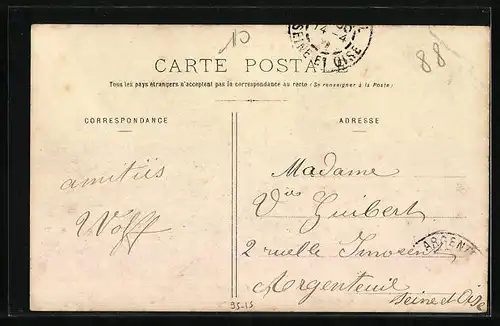 10
88
14-4
SEINE ET OISE
CARTE POSTALE
Tous les pays étrangers n'acceptent pas la correspondance au recto (Se renseigner à la Poste)
CORRESPONDANCE
ADRESSE
amitiés
Wolff
Madame
Vve Guibert
2 ruelle Innosent
Argenteuil
Seine et Oise
ARGENT
95-15